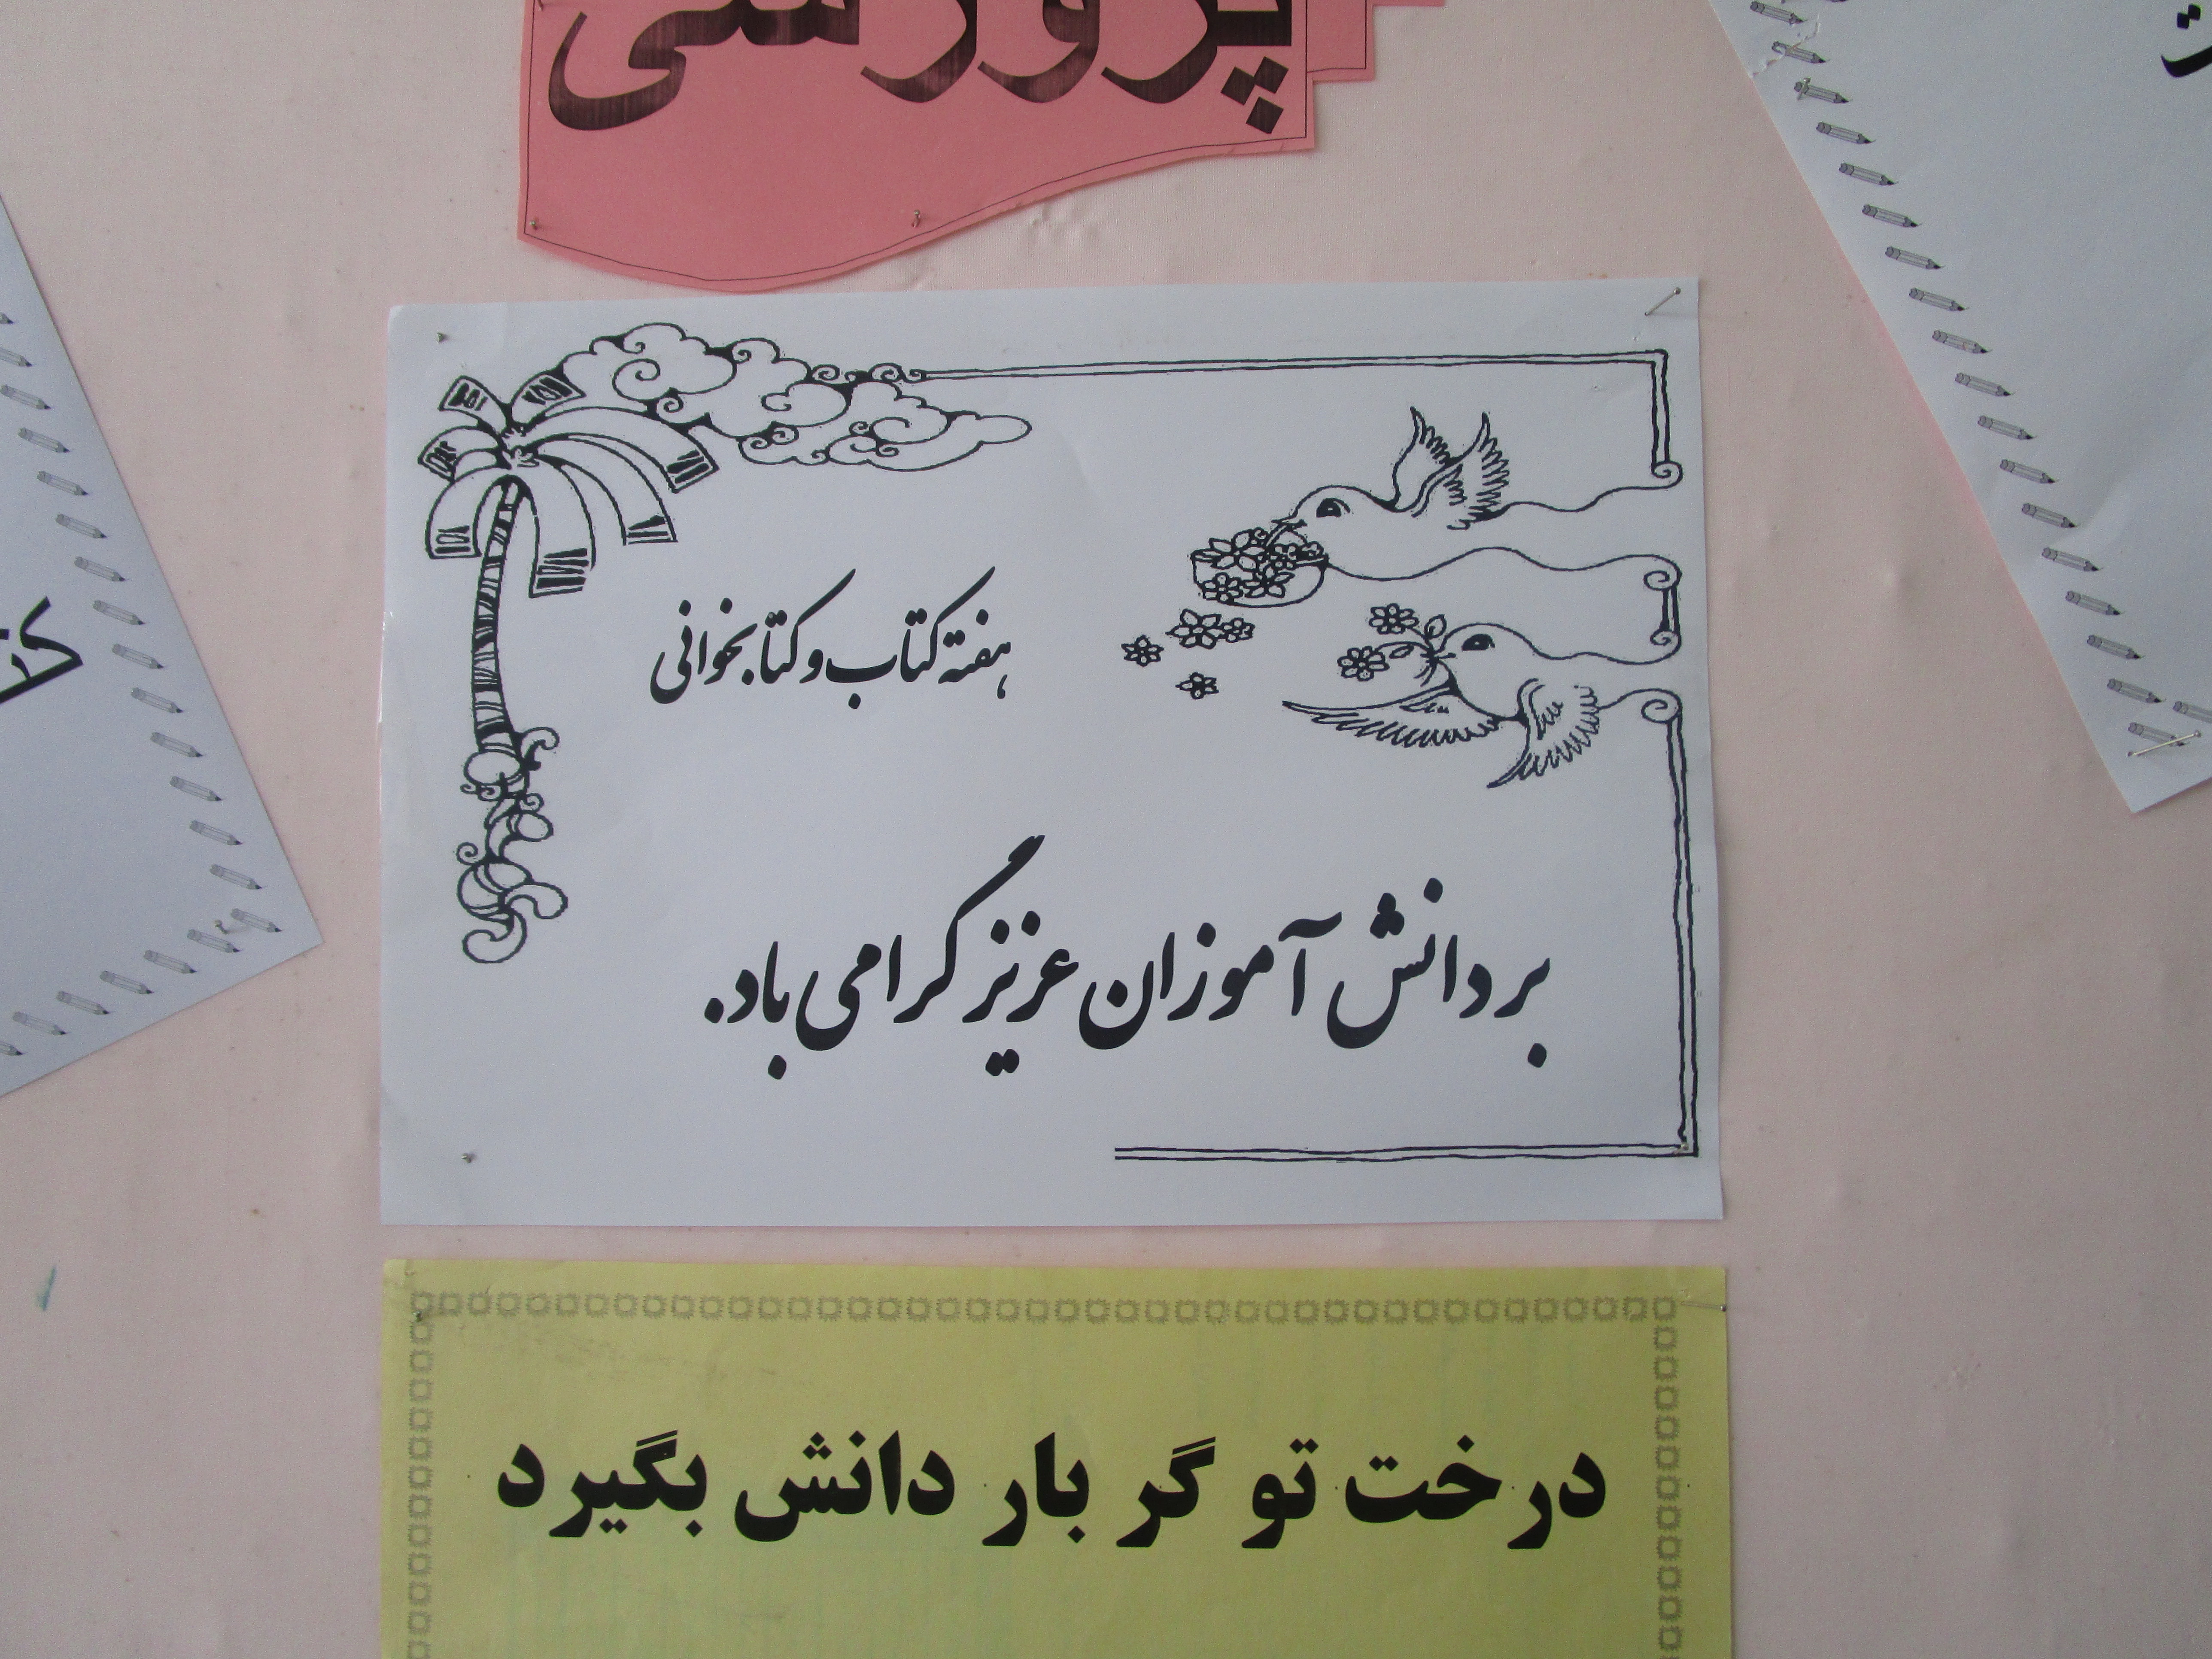 پرورشی
هفته کتاب و کتابخوانی
بر دانش آموزان عزیز گرامی باد.
درخت تو گر بار دانش بگیرد